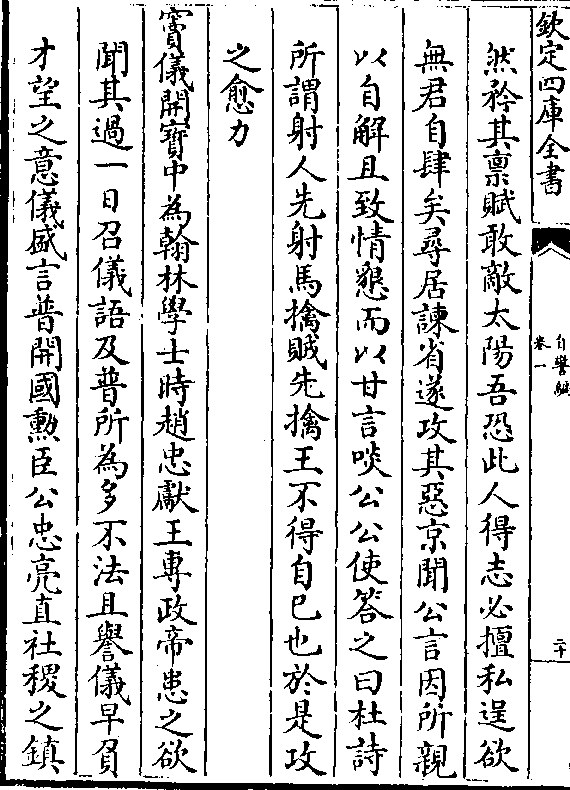 欽定四庫全書
自警編
卷一
二十
然矜其禀賦敢敵太陽吾恐此人得志必擅私逞欲
無君自肆矣尋居諫省遂攻其惡京聞公言因所親
以自解且致情懇而以甘言啖公公使答之曰杜詩
所謂射人先射馬擒賊先擒王不得自已也於是攻
之愈力
竇儀開寶中為翰林學士時趙忠獻王專政帝患之欲
聞其過一日召儀語及普所為多不法且譽儀早負
才望之意儀盛言普開國勲臣公忠亮直社稷之鎮